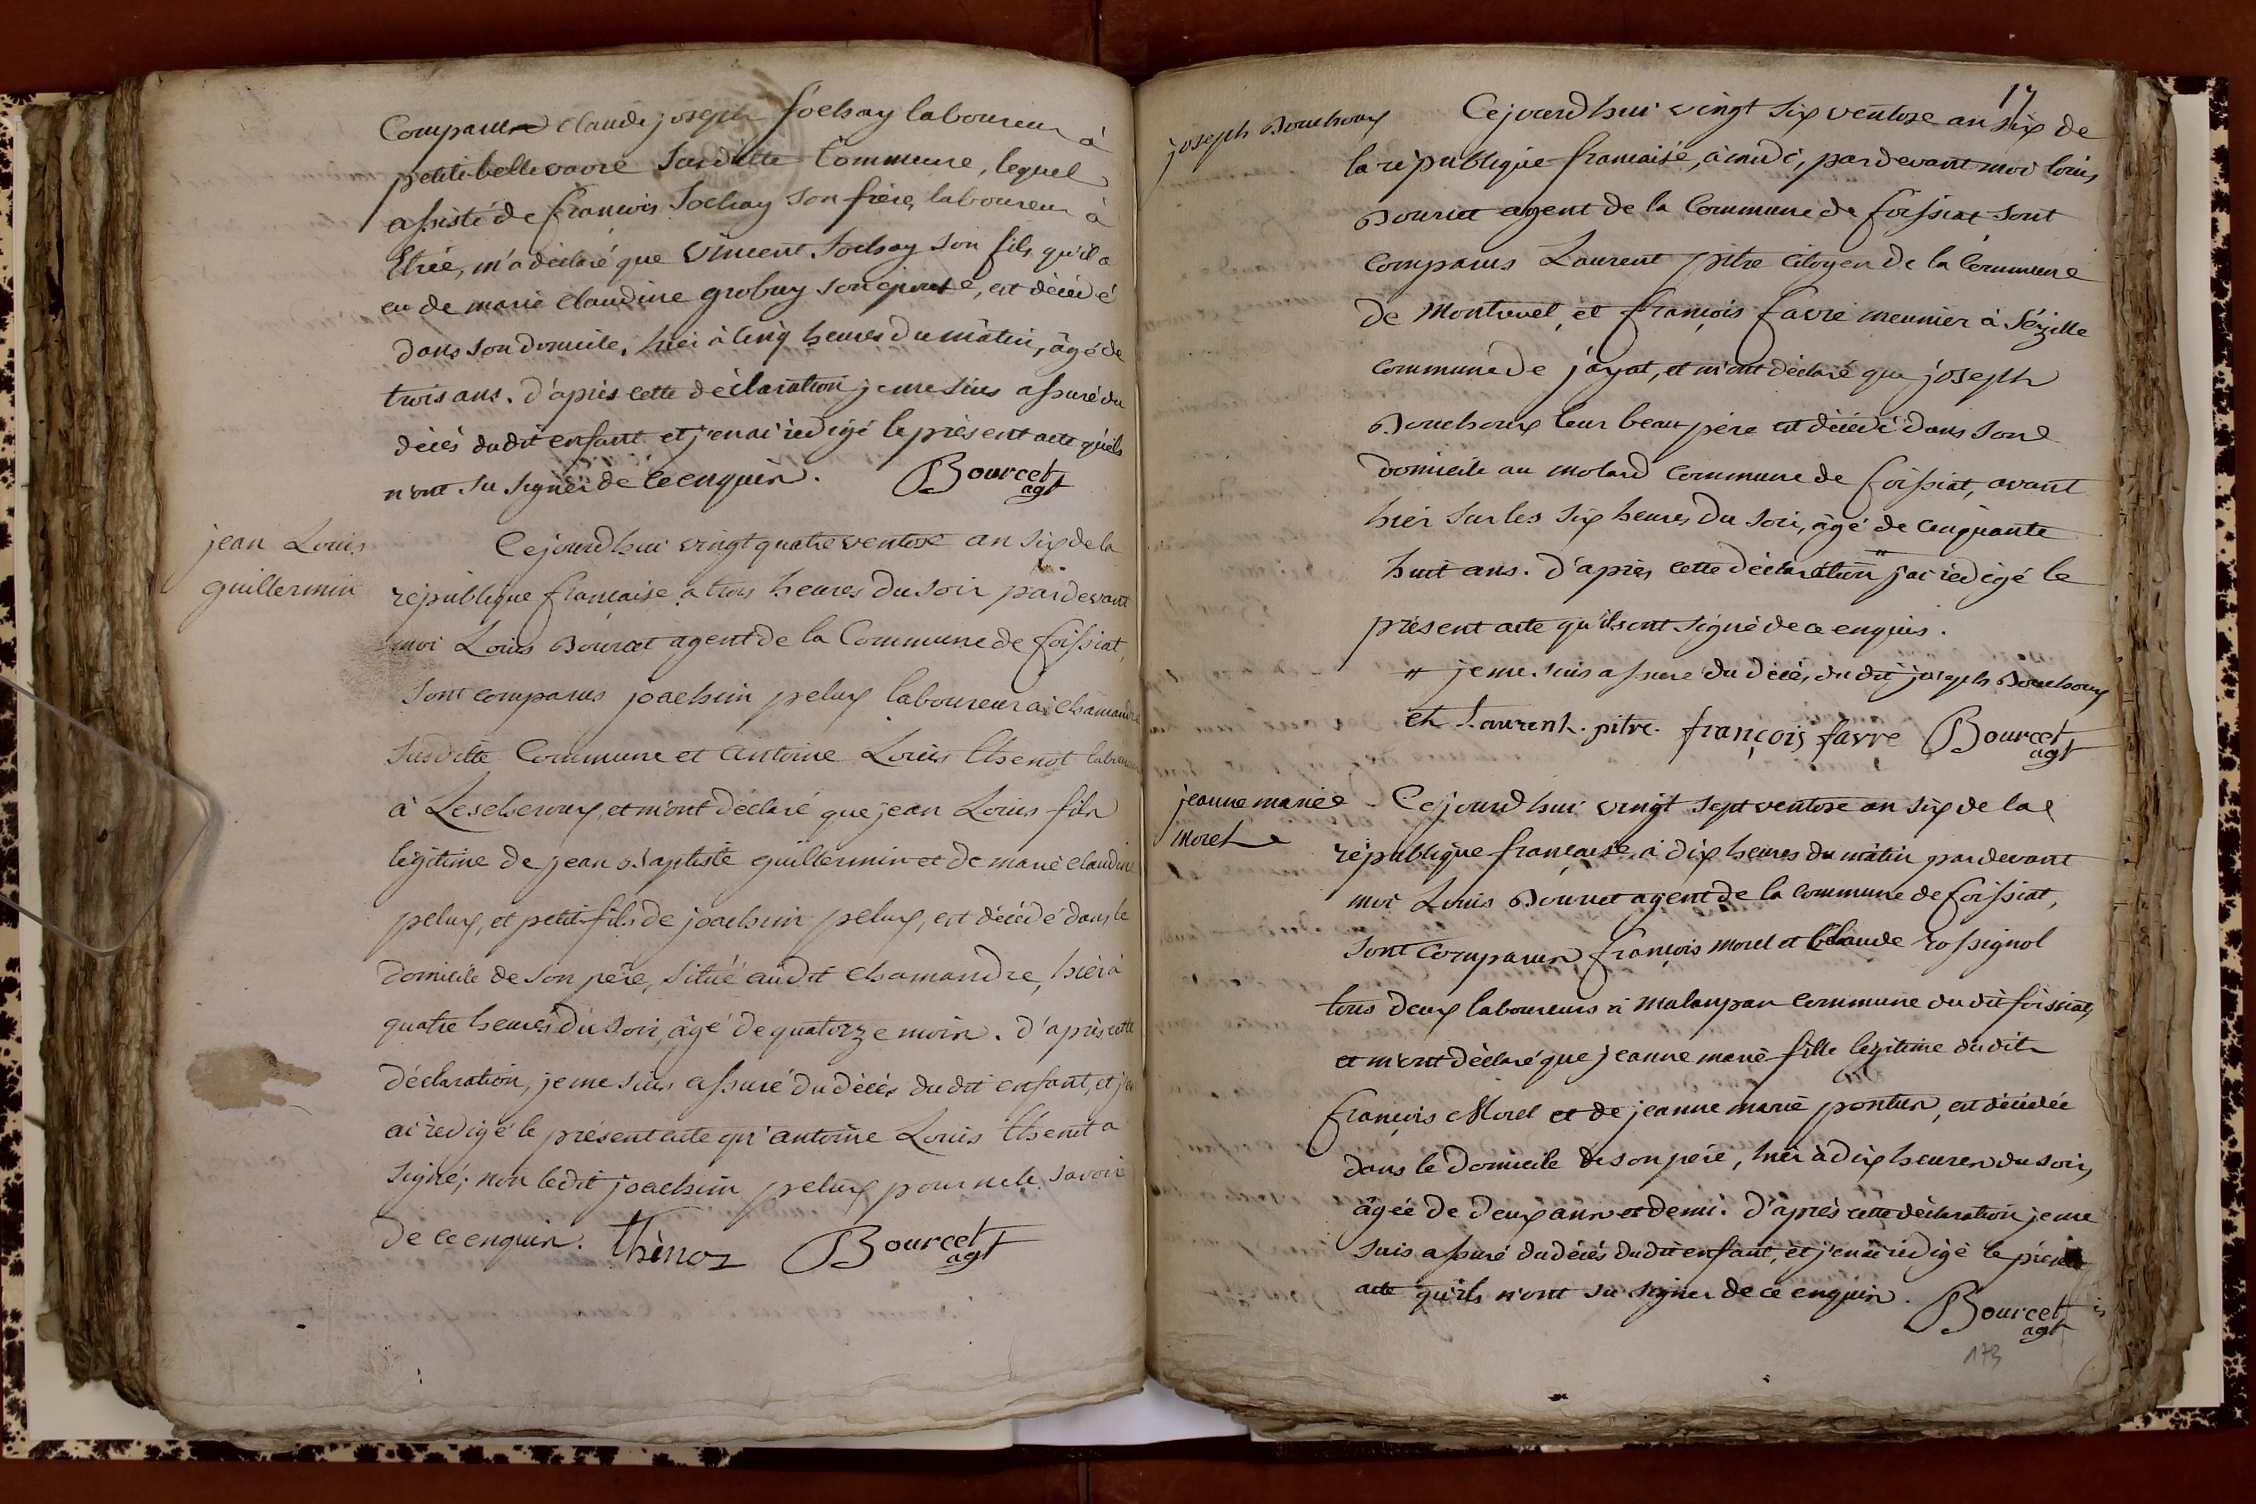 Comparu Claude joseph sochay laboureur à
petite bellevavre susditte Commune, lequel
assisté de françois sochay son frère, laboureur à
Etrée, m'a déclaré que Vincent sochay son fils, qu'il a
eu de marie Claudine grobuy son épouse, est décédé
dans son domicile, hier à cinq heures du mâtin, âgé de
trois ans. d'après cette déclaration je me suis assuré du
décès dudit enfant et j'en ai rédigé le présent acte qu'ils
n'ont su signer de ce enquis.
Bourcet
agt
jean Louis
guillermin
Cejourd'hui vingt quatre ventose an six de la
république française à trois heures du soir pardevant
moi Louis Bourcet agent de la Commune de foissiat,
sont comparus joachim pelux laboureur à chamandre
susditte Commune et antoine Louis thenot laboureur
à Lescheroux, et m'ont déclaré que jean Louis fils
légitime de jean Baptiste guillermin et de marie claudine
pelux, et petit fils de joachim pelux, est décédé dans le
domicile de son père, situé audit chamandre, hier à
quatre heures du soir, âgé de quatorze mois. d'après cette
déclaration, je me suis assuré du décès dudit enfant, et j'en
ai rédigé le présent acte qu'antoine Louis thenot a
signé; non ledit joachim pelux pour ne le savoir
de ce enquis. thenoz Bourcet
agt
17
joseph Bouchoux
Cejourd'hui vingt six ventose an six de
la république française, à midi, pardevant moi louis
Bourcet agent de la Commune de foissiat sont
comparus Laurent pitre citoyen de la Commune
de Montrevel, et françois favre meunier à Sézille
commune de jayat, et m'ont déclaré que joseph
Bouchoux leur beau père est décédé dans son
domicile au molard commune de foissiat, avant
hier sur les six heures du soir, âgé de cinquante
huit ans. d'après cette déclaration # j'ai rédigé le
présent acte qu'ils ont signé de ce enquis.
# je me suis assuré du décès dudit joseph Bouchoux
et Laurent. pitre. françois favre Bourcet
agt
jeanne marie
Morel
Cejourd'hui vingt sept ventose an six de la
république française, à dix heures du mâtin pardevant
moi Louis Bourcet agent de la commune de foissiat,
sont comparus françois morel et Claude rossignol
tous deux laboureurs à malaupan commune dudit foissiat,
et m'ont déclaré que jeanne marie fille légitime dudit
françois Morel et de jeanne marie pontus, est décédée
dans le domicile de son père, hier à dix heures du soir,
âgée de deux ans et demi. d'après cette déclaration je me
suis assuré du décès dudit enfant, et j'en ai rédigé le présent
acte qu'ils n'ont su signer de ce enquis.
Bourcet
agt
173